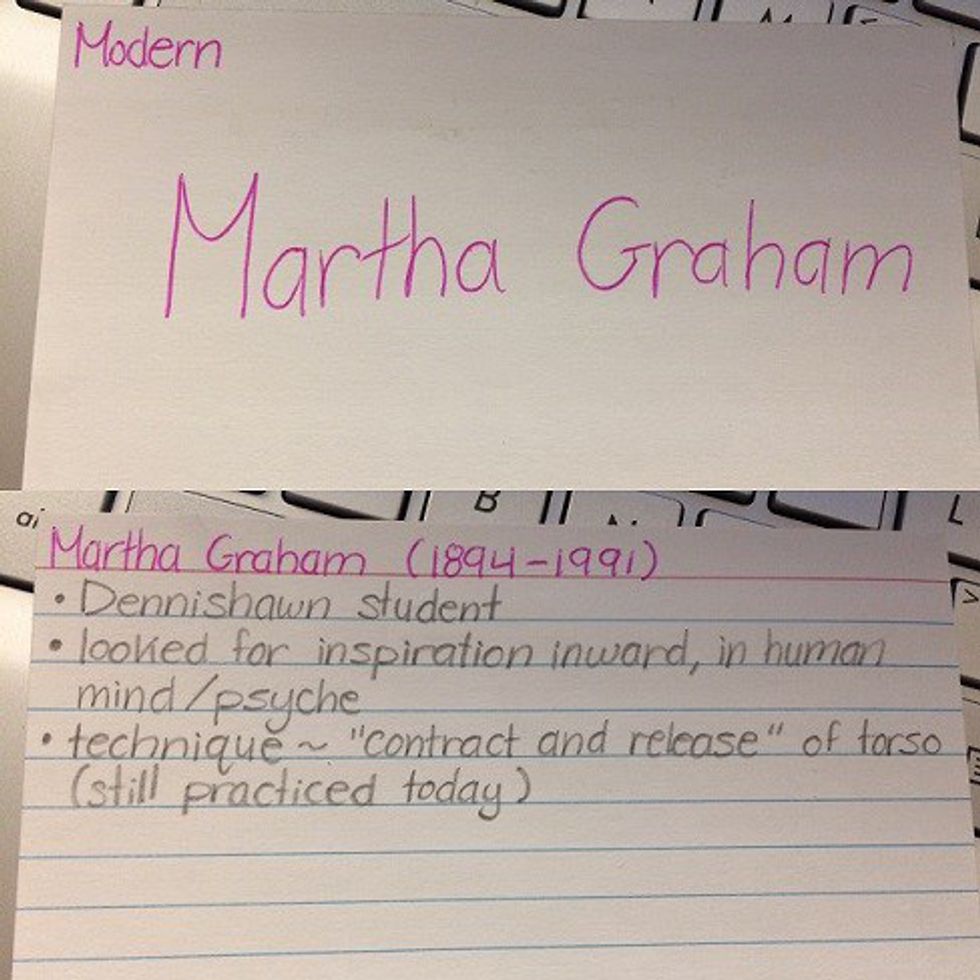 Modern
Martha Graham
B
L
Martha Graham (1894-1991)
• Dennishawn student
• looked for inspiration inward, in human
mind/psyche
• technique ~ "contract and release" of torso
(still practiced today)